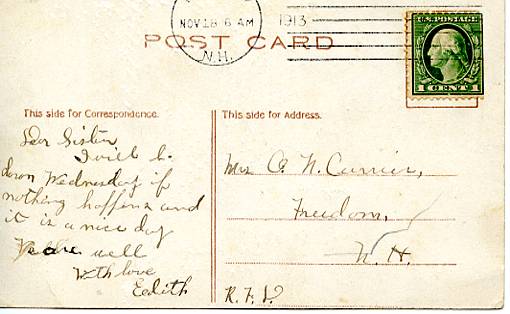 NOV 18 6 AM 1913
N.H.
POST CARD
U.S. POSTAGE
1 CENT 1
This side for Correspondence.
Dear Sister
I will be
down Wednesday if
nothing happens and
it is a nice day
well
With love
Eedith
This side for Address.
Mrs O. N. Currier,
Freedom,
N. H.
R. F. D.